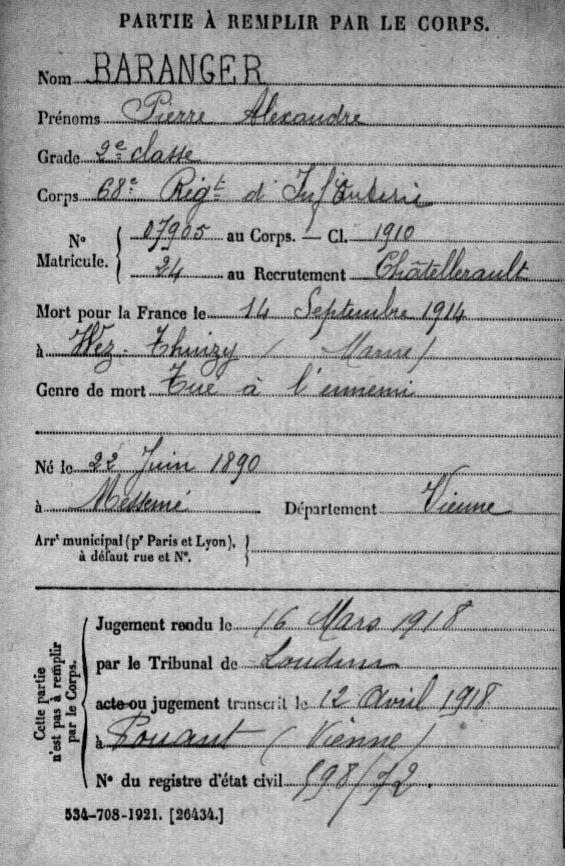 PARTIE À REMPLIR PAR LE CORPS.
Nom BARANGER
Prénoms Pierre Alexandre
Grade 2e classe
Corps 68e Régt d'Infanterie
No Matricule. { 07905 au Corps. — Cl. 1910
24 au Recrutement Châtellerault
Mort pour la France le 14 Septembre 1914
à Wez-Thuizy (Marne)
Genre de mort Tué à l'ennemi
Né le 22 Juin 1890
à Messemé Département Vienne
Arrt municipal (pr Paris et Lyon), }
à défaut rue et No.
Cette partie n'est pas à remplir par le Corps.
Jugement rendu le 16 Mars 1918
par le Tribunal de Loudun
acte ou jugement transcrit le 12 Avril 1918
à Pouant (Vienne)
No du registre d'état civil 598/72.
534-708-1921. [26434.]